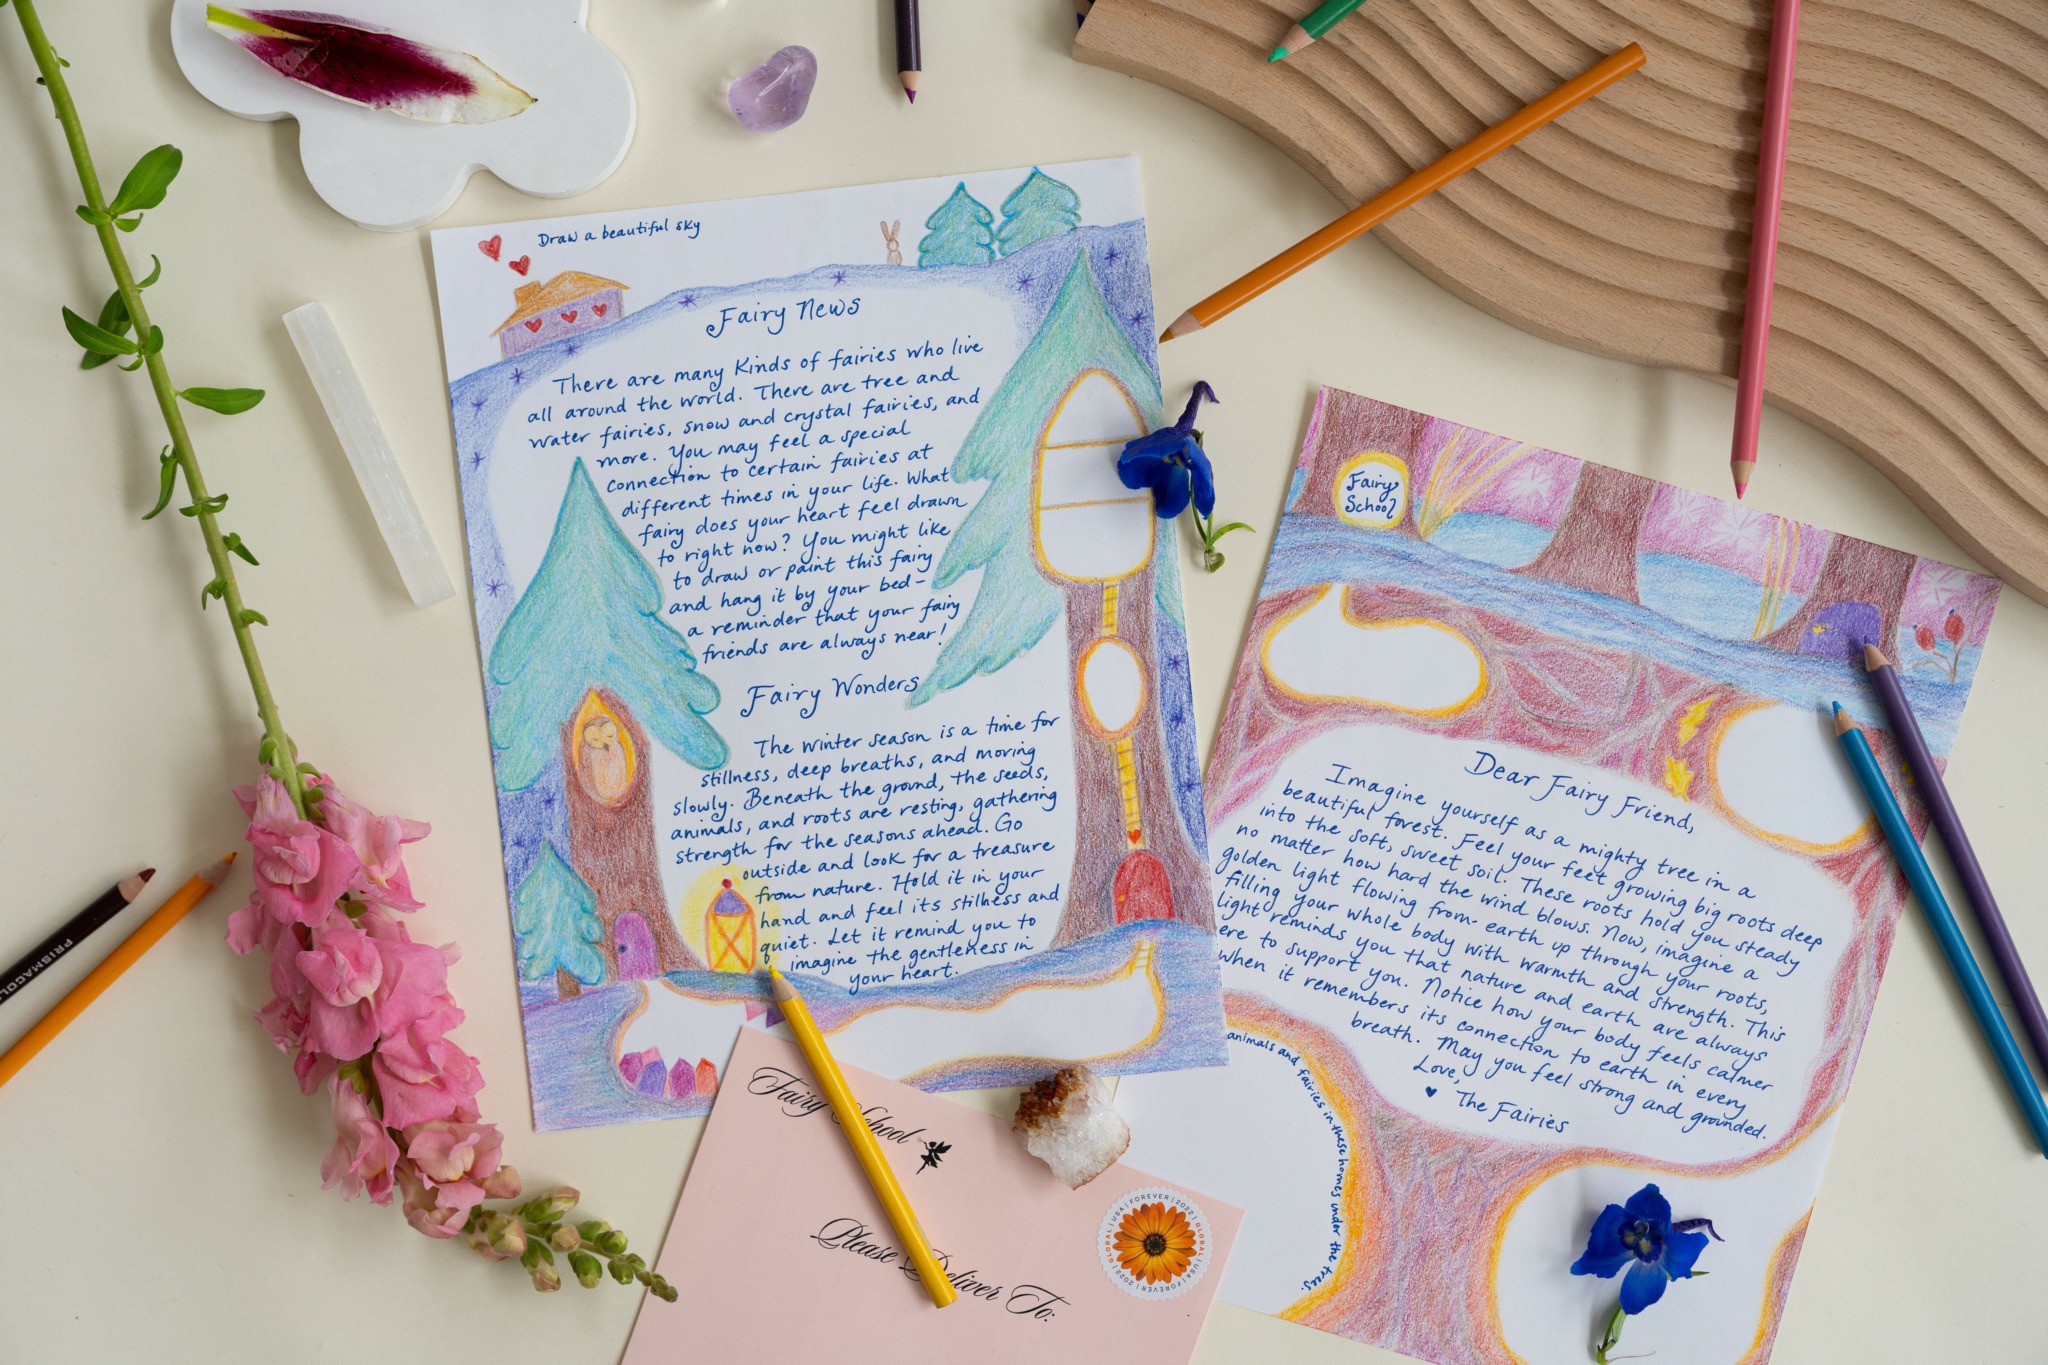 Draw a beautiful sky
Fairy News
There are many Kinds of fairies who live
all around the world. There are tree and
water fairies, snow and crystal fairies, and
more. You may feel a special
connection to certain fairies at
different times in your life. What
fairy does your heart feel drawn
to right now? You might like
to draw or paint this fairy
and hang it by your bed-
a reminder that your fairy
friends are always near!
Fairy Wonders
The winter season is a time for
stillness, deep breaths, and moving
slowly. Beneath the ground, the seeds,
animals, and roots are resting, gathering
strength for the seasons ahead. Go
outside and look for a treasure
from nature. Hold it in your
hand and feel its stillness and
quiet. Let it remind you to
imagine the gentleness in
your heart.
Fairy
School
Dear Fairy Friend,
Imagine yourself as a mighty tree in a
beautiful forest. Feel your feet growing big roots deep
into the soft, sweet soil. These roots hold you steady
no matter how hard the wind blows. Now, imagine a
golden light flowing from earth up through your roots,
filling your whole body with warmth and strength. This
light reminds you that nature and earth are always
ere to support you. Notice how your body feels calmer
when it remembers its connection to earth in every
breath. May you feel strong and grounded.
Love,
The Fairies
animals and fairies in these homes under the trees
Fairy School
Please Deliver To:
GLOBAL | USA | FOREVER | 2022 | GLOBAL | USA | FOREVER | 2022
PRISMACOL